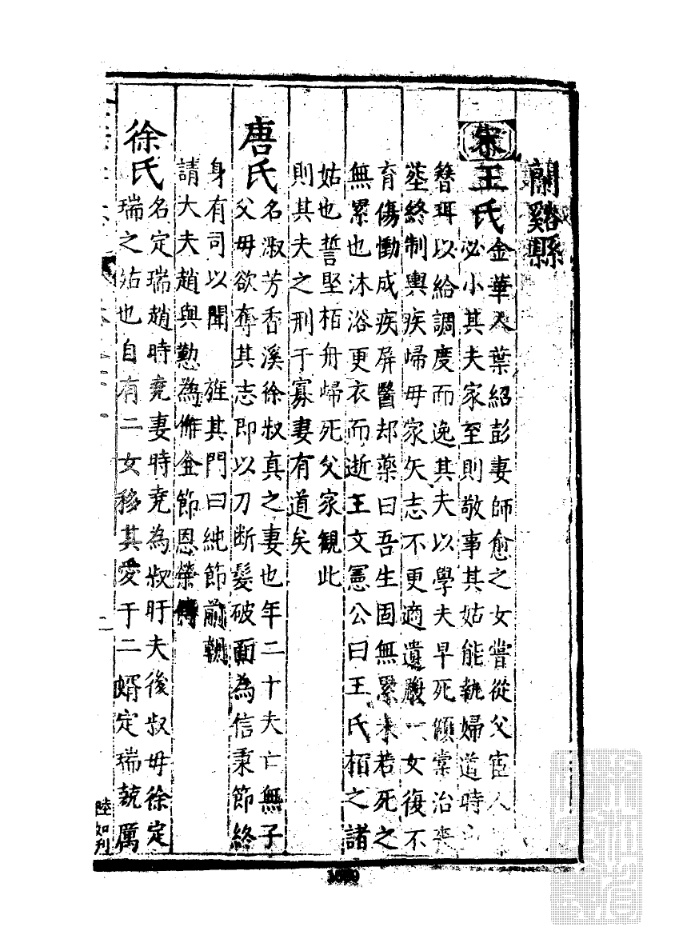 蘭谿縣
宋
王氏
金華人葉紹彭妻師愈之女嘗從父宦人
必小其夫家至則敬事其姑能執婦道時
簪珥以給調度而逸其夫以學夫早死傾棠治喪
塟終制輿疾歸母家矢志不更適遺腹一女復不
育傷慟成疾屏醫却藥曰吾生固無累未若死之
無累也沐浴更衣而逝王文憲公曰王氏栢之諸
姑也誓堅栢舟歸死父家観此
則其夫之刑于寡妻有道矣
唐氏
名淑芳香溪徐叔真之妻也年二十夫亡無子
父母欲奪其志即以刀断髮破面為信秉節終
身有司以聞 旌其門曰純節前朝
請大夫趙與懃為作金節恩榮傳
徐氏
名定瑞趙時堯妻時堯為叔盱夫後叔母徐定
瑞之姑也自有二女移其愛于二壻定瑞兢厲
二
陸如刋